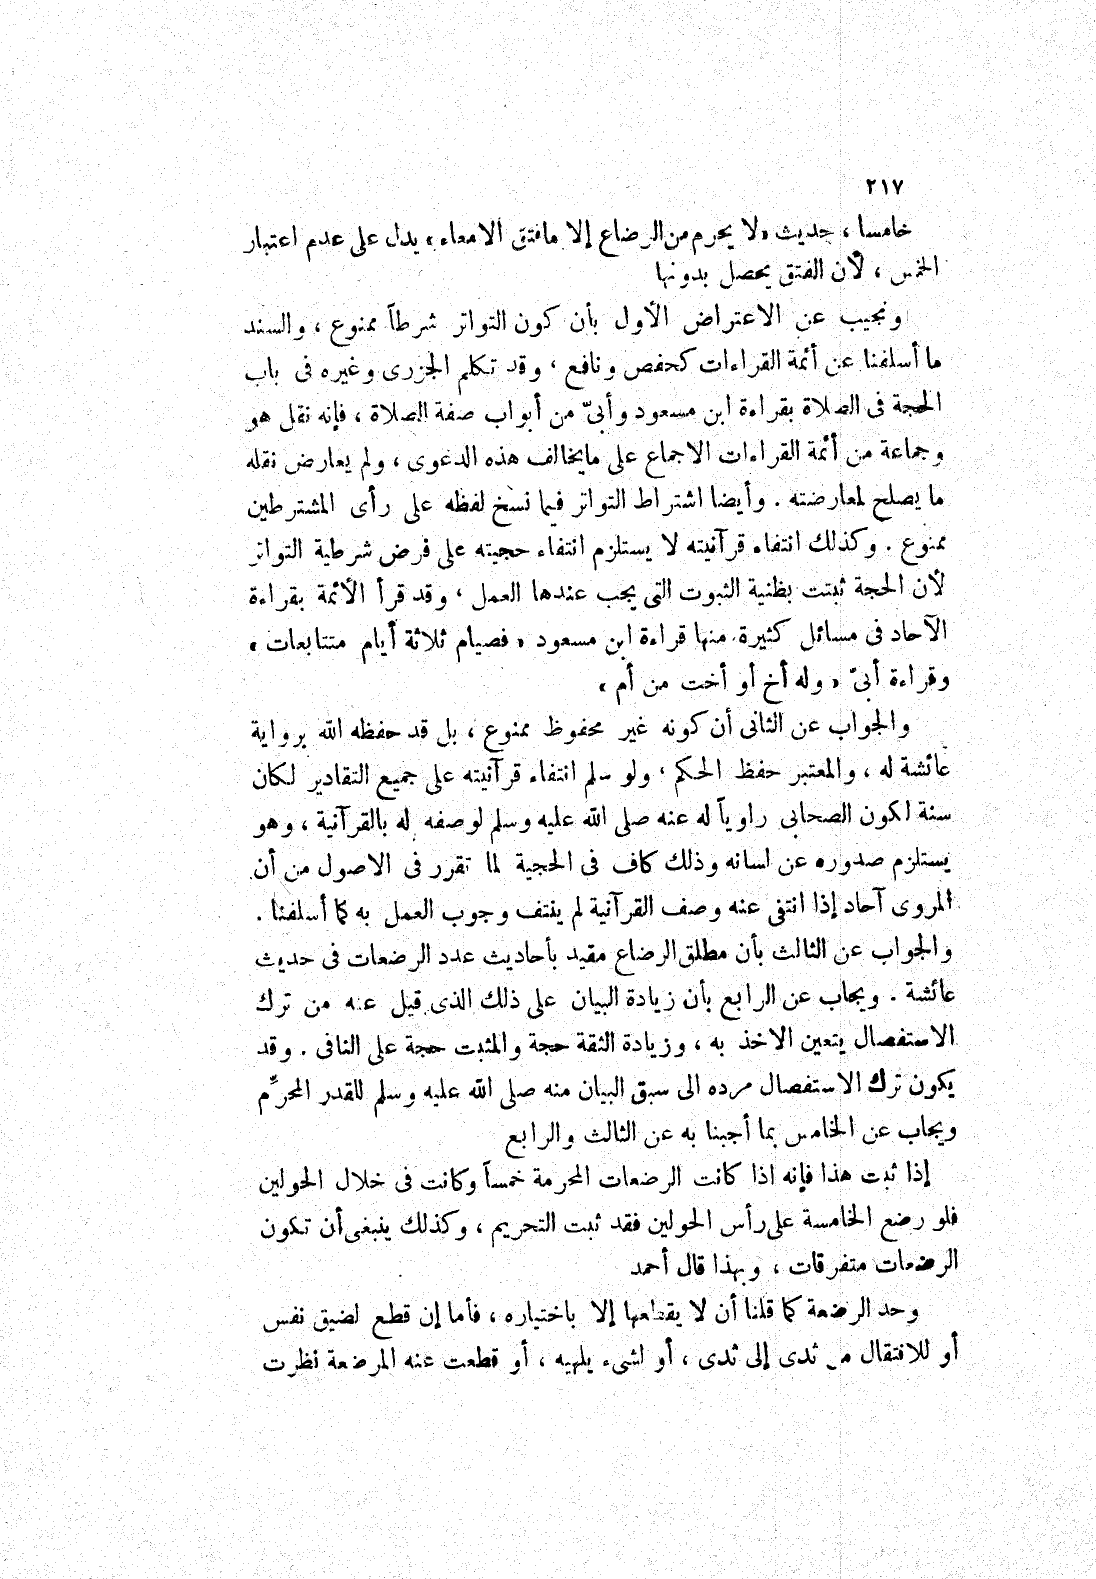 ٢١٧
خامسا ، حديث «لا يحرم من الرضاع إلا ما فتق الامعاء» يدل على عدم اعتبار
الخمس ، لأن الفتق يحصل بدونها
ونجيب عن الاعتراض الأول بأن كون التواتر شرطاً ممنوع ، والسند
ما أسلفنا عن أئمة القراءات كحفص ونافع ، وقد تكلم الجزرى وغيره فى باب
الحجة فى الصلاة بقراءة ابن مسعود وأبىّ من أبواب صفة الصلاة ، فإنه نقل هو
وجماعة من أئمة القراءات الاجماع على ما يخالف هذه الدعوى ، ولم يعارض نقله
ما يصلح لمعارضته . وأيضا اشتراط التواتر فيما نسخ لفظه على رأى المشترطين
ممنوع . وكذلك انتفاء قرآنيته لا يستلزم انتفاء حجيته على فرض شرطية التواتر
لأن الحجة ثبتت بظنية الثبوت التى يجب عندها العمل ، وقد قرأ الأئمة بقراءة
الآحاد فى مسائل كثيرة منها قراءة ابن مسعود « فصيام ثلاثة أيام متتابعات »
وقراءة أبىّ « وله أخ أو أخت من أم »
والجواب عن الثانى أن كونه غير محفوظ ممنوع ، بل قد حفظه الله برواية
عائشة له ، والمعتبر حفظ الحكم ، ولو سلم انتفاء قرآنيته على جميع التقادير لكان
سنة لكون الصحابى راوياً له عنه صلى الله عليه وسلم لوصفه له بالقرآنية ، وهو
يستلزم صدوره عن لسانه وذلك كاف فى الحجية لما تقرر فى الاصول من أن
المروى آحاد إذا انتفى عنه وصف القرآنية لم ينتف وجوب العمل به كما أسلفنا .
والجواب عن الثالث بأن مطلق الرضاع مقيد بأحاديث عدد الرضعات فى حديث
عائشة . ويجاب عن الرابع بأن زيادة البيان على ذلك الذى قيل عنه من ترك
الاستفصال يتعين الاخذ به ، وزيادة الثقة حجة والمثبت حجة على النافى . وقد
يكون ترك الاستفصال مرده الى سبق البيان منه صلى الله عليه وسلم للقدر المحرِّم
ويجاب عن الخامس بما أجبنا به عن الثالث والرابع
إذا ثبت هذا فإنه اذا كانت الرضعات المحرمة خمساً وكانت فى خلال الحولين
فلو رضع الخامسة على رأس الحولين فقد ثبت التحريم ، وكذلك ينبغى أن تكون
الرضعات متفرقات ، وبهذا قال أحمد
وحد الرضعة كما قلنا أن لا يقطعها إلا باختياره ، فأما إن قطع لضيق نفس
أو للانتقال من ثدى إلى ثدى ، أو لشىء يلهيه ، أو قطعت عنه المرضعة نظرت